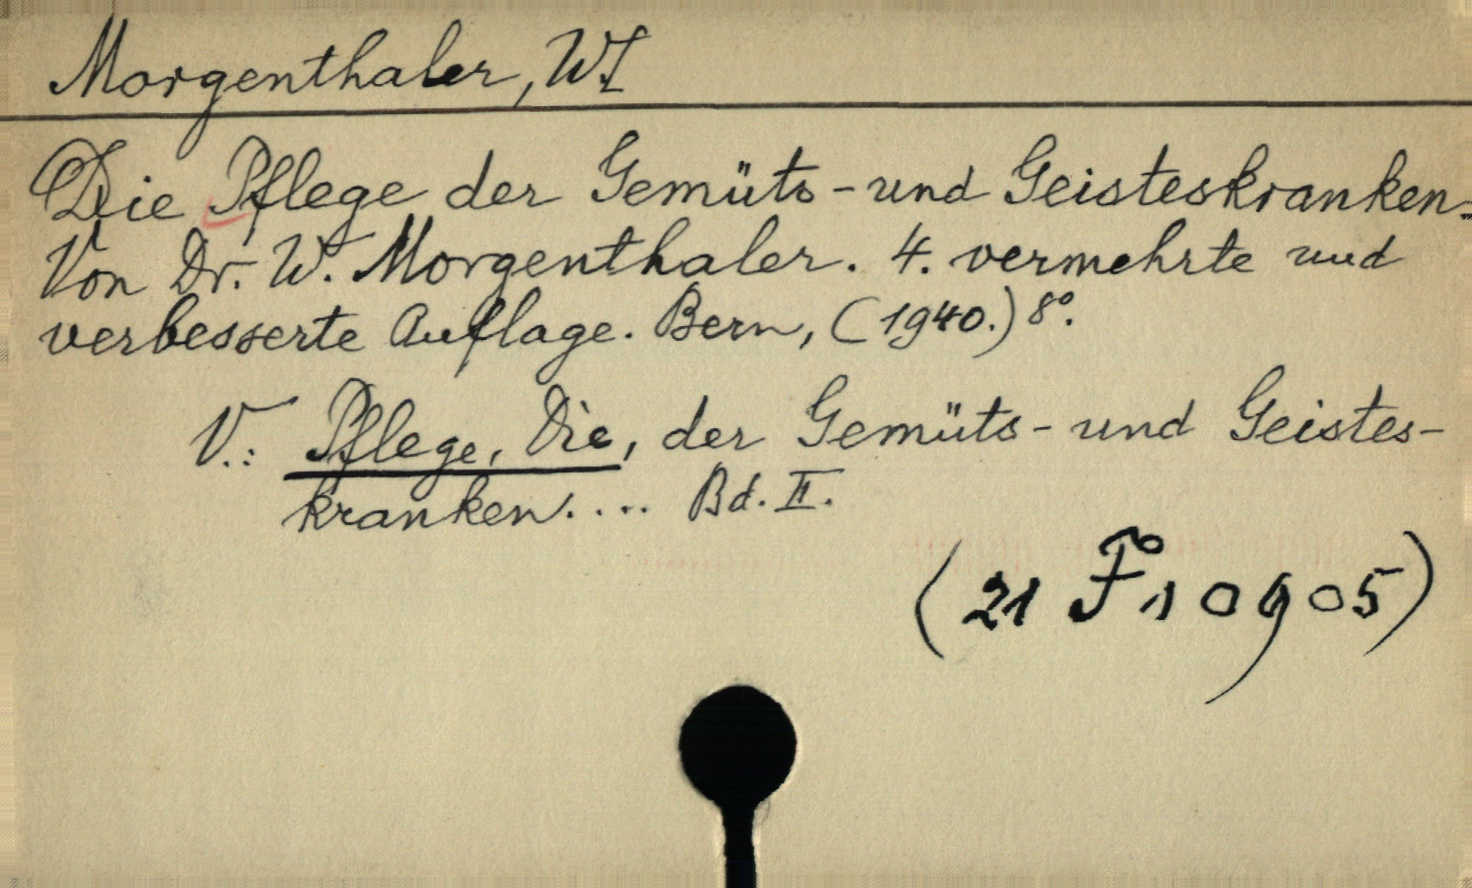 Morgenthaler, W.
Die Pflege der Gemüts- und Geisteskranken.
Von Dr. W. Morgenthaler. 4. vermehrte und
verbesserte Auflage. Bern, (1940.) 8°.
V.: Pflege, Die, der Gemüts- und Geistes-
kranken.... Bd. II.
(21 F 10905)